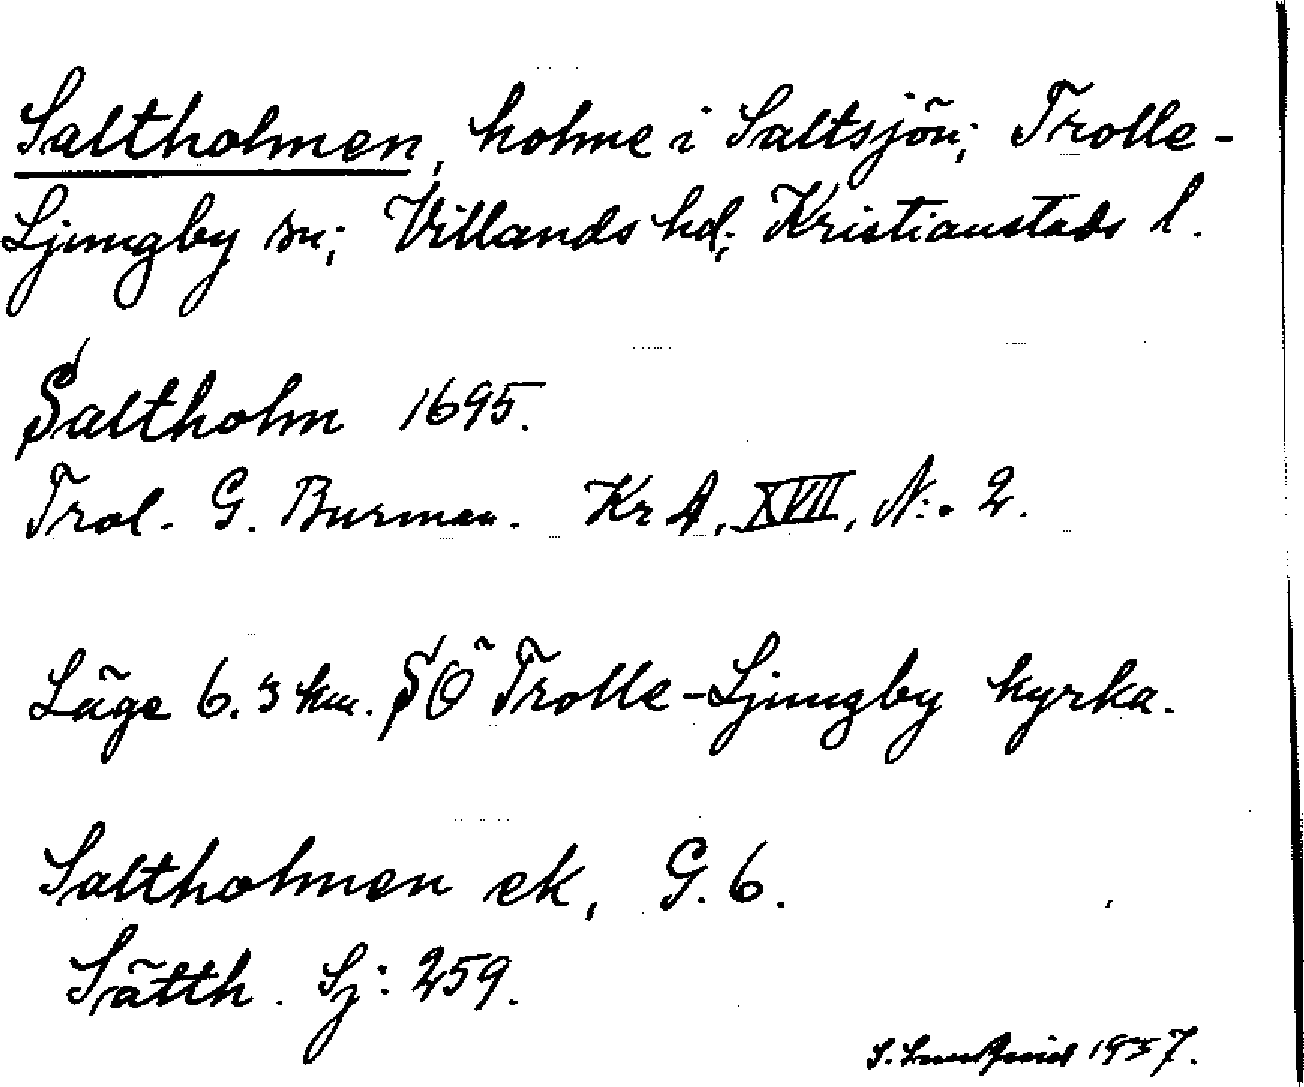 Saltholmen, holme i Saltsjön; Trolle-
Ljungby sn; Villands hd; Kristianstads l.
Saltholm 1695.
Trol. G. Burman. Kr A, XVII, N:o 2.
Läge 6.3 km. SÖ Trolle-Ljungby kyrka.
Saltholmen ek, G. 6.
Sätth. Sj: 259.
1937.